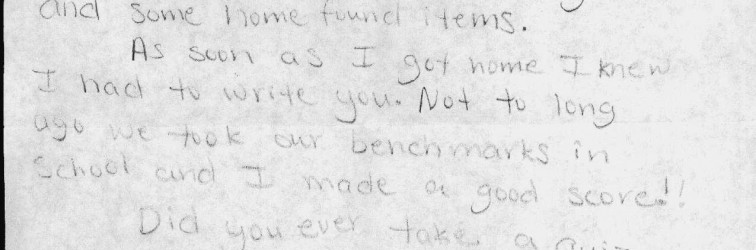 and some home found items.
As soon as I got home I knew
I had to write you. Not to long
ago we took our benchmarks in
School and I made a good score!!
Did you ever take a quiz